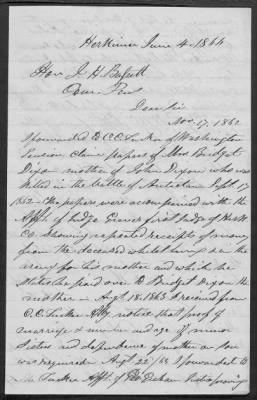 Herkimer June 4. 1864
Hon J. H. Barrett
Com. Pens
Dear Sir
Nov. 17, 1862
I forwarded to C. C. Tucker of Washington
Pension Claim papers of Mrs Bridget
Dixon mother of John Dixon who was
killed in the battle of Antietam Sept. 17
1862 - The papers were accompanied with the
Affdt of Judge Graves first Judge of Herk
Co. showing repeated receipts of money
from the deceased whilst living & in the
army for his mother and which he
states he paid over to Bridget Dixon the
mother on Augt 18. 1863 I received from
C. C. Tucker Atty notice that proof of
marriage & number and age of minor
sisters and dependence of mother on son
was required Augt 22/63 I forwarded to
Mr Tucker Affdt of proving